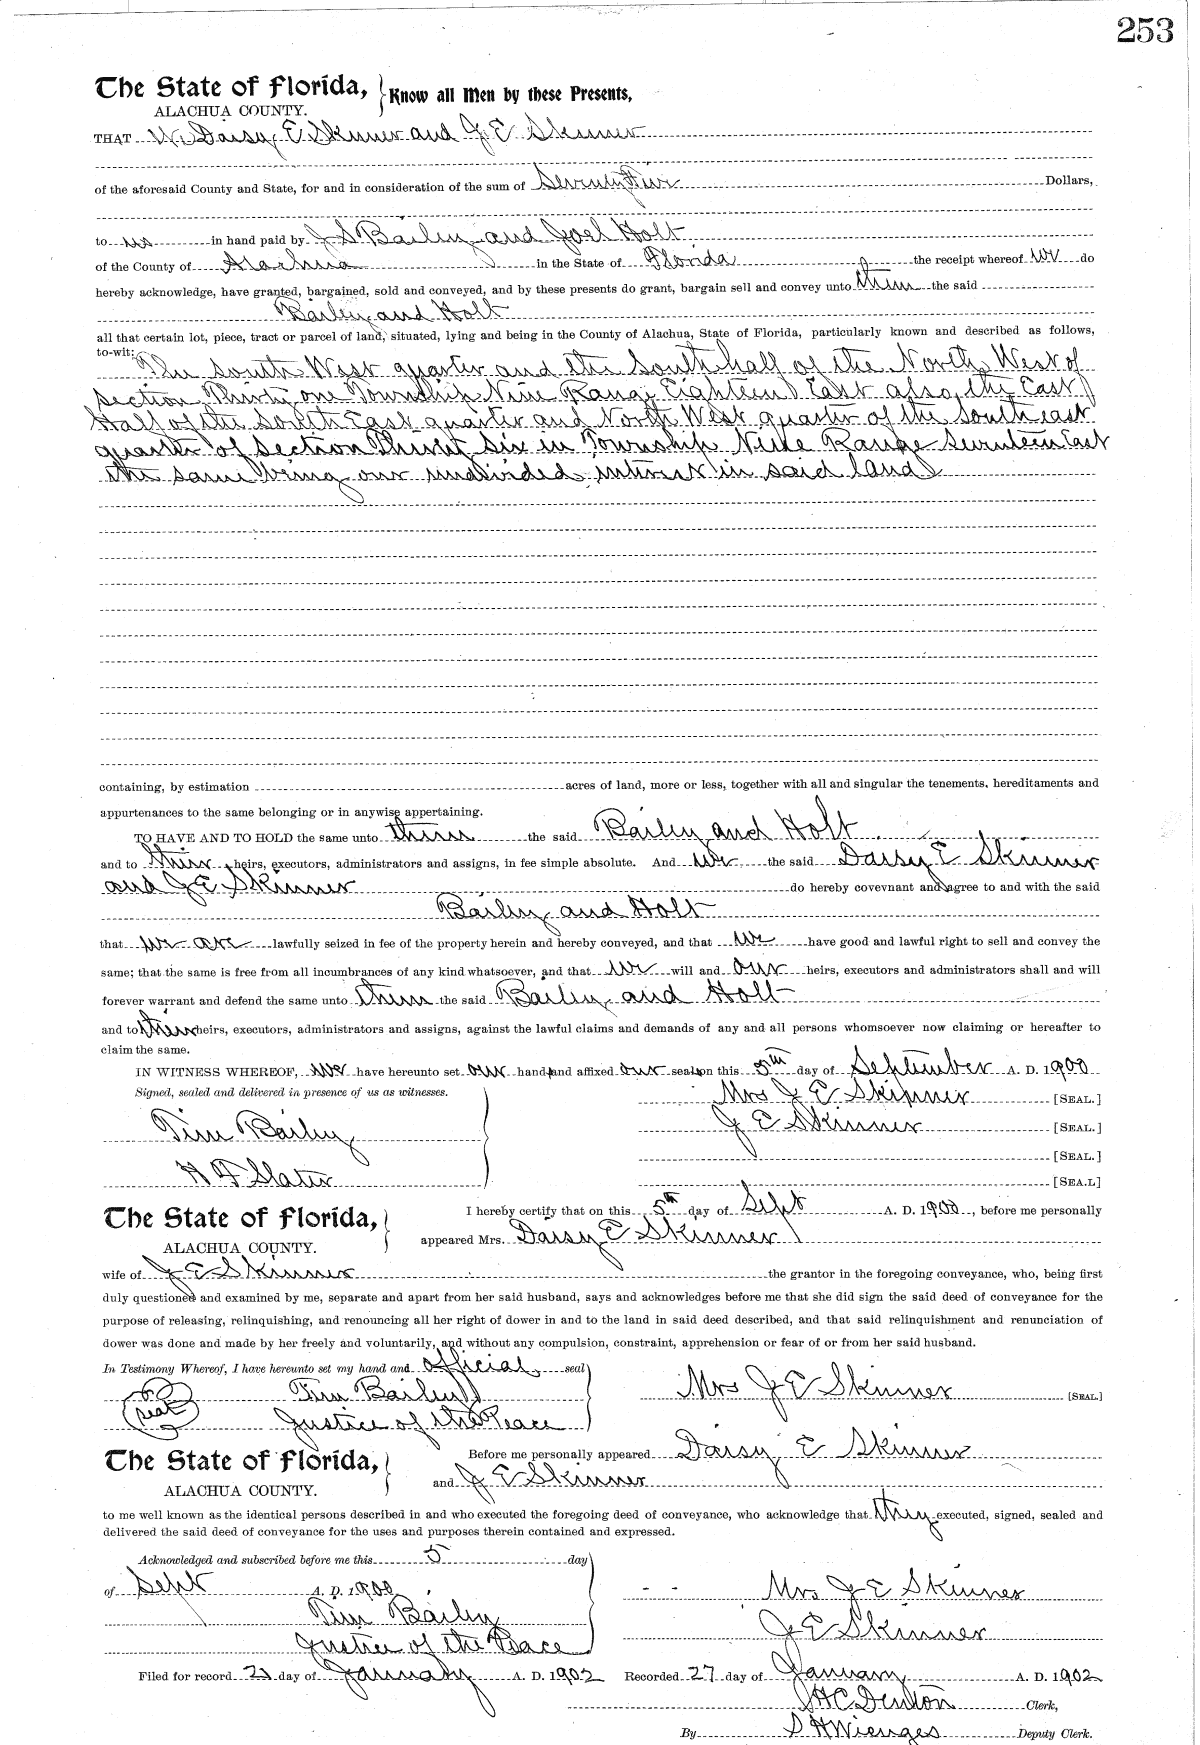 253
The State of Florida, Know all Men by these Presents,
ALACHUA COUNTY.
THAT We Daisy E Skinner and J E Skinner
of the aforesaid County and State, for and in consideration of the sum of Seventy Five Dollars,
to us in hand paid by J S Bailey and Joel Holt
of the County of Alachua in the State of Florida the receipt whereof we do
hereby acknowledge, have granted, bargained, sold and conveyed, and by these presents do grant, bargain sell and convey unto them the said
Bailey and Holt
all that certain lot, piece, tract or parcel of land, situated, lying and being in the County of Alachua, State of Florida, particularly known and described as follows,
to-wit: The South West quarter and the South half of the North West of
section Thirty one Township Nine Range Eighteen East also the East
Half of the South East quarter and North West quarter of the South east
quarter of Section Thirty Six in Township Nine Range Seventeen East
the same being our undivided interest in said land
containing, by estimation acres of land, more or less, together with all and singular the tenements, hereditaments and
appurtenances to the same belonging or in anywise appertaining.
TO HAVE AND TO HOLD the same unto them the said Bailey and Holt
and to their heirs, executors, administrators and assigns, in fee simple absolute. And we the said Daisy E Skinner
and J E Skinner do hereby covevnant and agree to and with the said
Bailey and Holt
that we are lawfully seized in fee of the property herein and hereby conveyed, and that we have good and lawful right to sell and convey the
same; that the same is free from all incumbrances of any kind whatsoever, and that we will and our heirs, executors and administrators shall and will
forever warrant and defend the same unto them the said Bailey and Holt
and to their heirs, executors, administrators and assigns, against the lawful claims and demands of any and all persons whomsoever now claiming or hereafter to
claim the same.
IN WITNESS WHEREOF, we have hereunto set our hand and affixed our seals on this 5th day of September A. D. 1900
Signed, sealed and delivered in presence of us as witnesses. Mrs J E Skinner [SEAL.]
Tim Bailey J E Skinner [SEAL.]
[SEAL.]
H F Slater [SEA.L]
The State of Florida, I hereby certify that on this 5th day of Sept A. D. 1900, before me personally
ALACHUA COUNTY. appeared Mrs. Daisy E Skinner
wife of J E Skinner the grantor in the foregoing conveyance, who, being first
duly questioned and examined by me, separate and apart from her said husband, says and acknowledges before me that she did sign the said deed of conveyance for the
purpose of releasing, relinquishing, and renouncing all her right of dower in and to the land in said deed described, and that said relinquishment and renunciation of
dower was done and made by her freely and voluntarily, and without any compulsion, constraint, apprehension or fear of or from her said husband.
In Testimony Whereof, I have hereunto set my hand and official seal
seal Tim Bailey Mrs J E Skinner [SEAL.]
Justice of the Peace
The State of Florida, Before me personally appeared Daisy E Skinner
ALACHUA COUNTY. and J E Skinner
to me well known as the identical persons described in and who executed the foregoing deed of conveyance, who acknowledge that they executed, signed, sealed and
delivered the said deed of conveyance for the uses and purposes therein contained and expressed.
Acknowledged and subscribed before me this 5 day
of Sept A. D. 1900 Mrs J E Skinner
Tim Bailey J E Skinner
Justice of the Peace
Filed for record day of January A. D. 1902 Recorded 27 day of January A. D. 1902
H C Denton Clerk,
By S H Wienges Deputy Clerk.